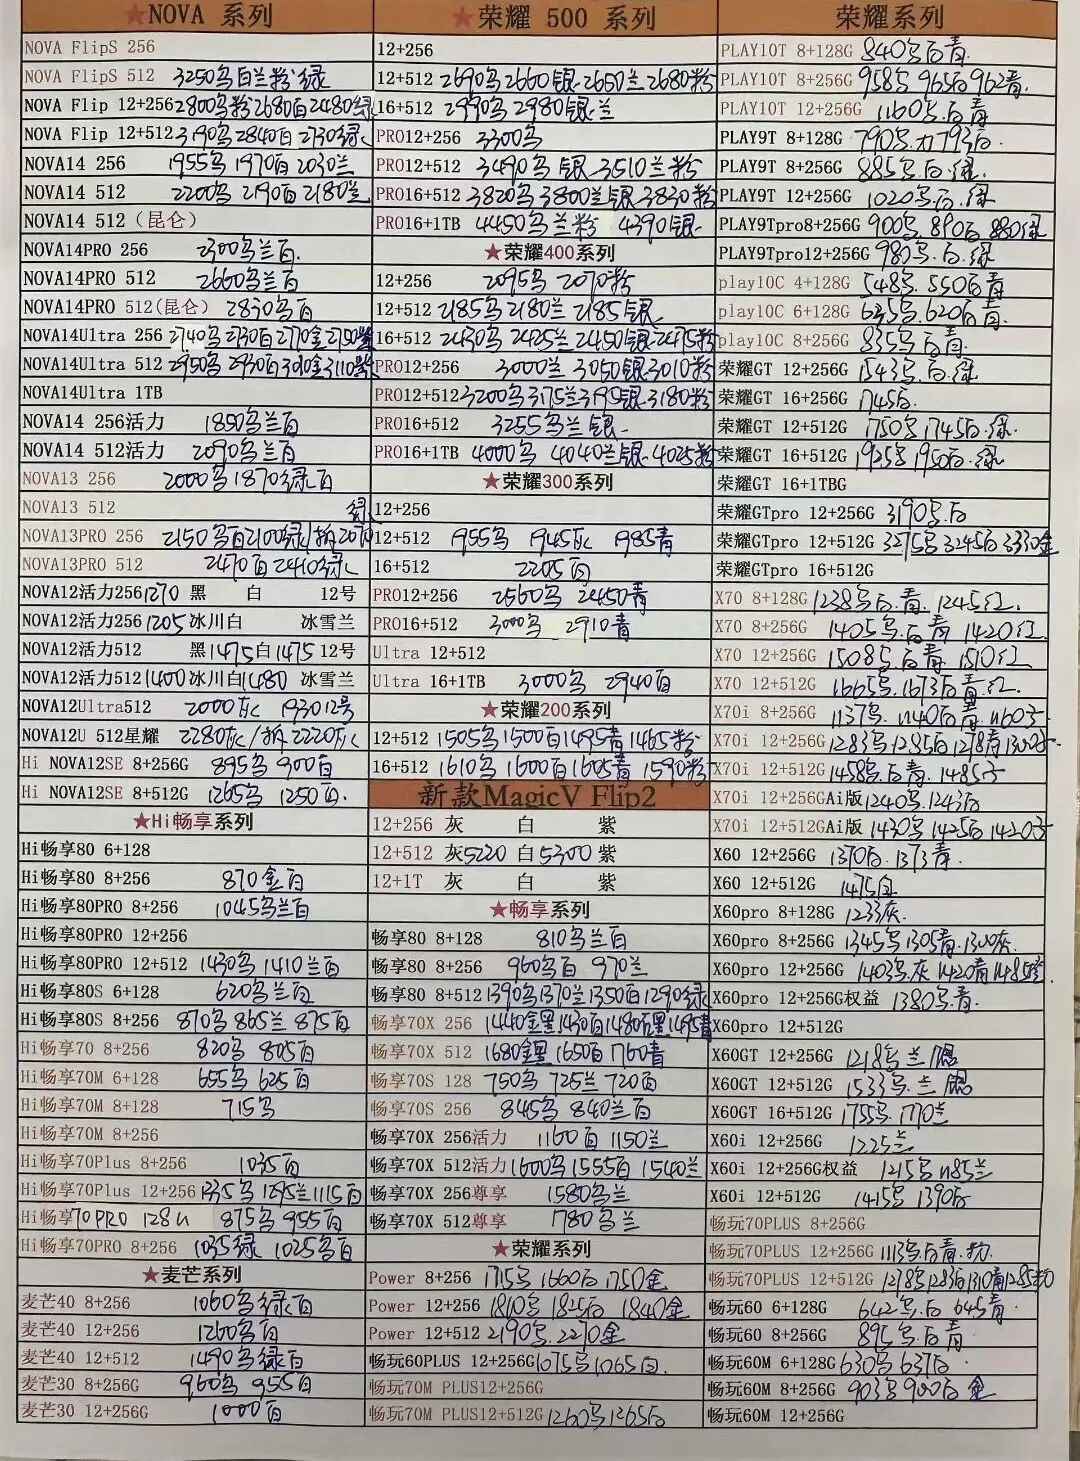 ★NOVA 系列
NOVA FlipS 256
NOVA FlipS 512 3250乌白兰粉绿
NOVA Flip 12+256 2800乌粉2680白2480绿
NOVA Flip 12+512 3190乌2840白2730绿
NOVA14 256 1955乌1970白2030兰
NOVA14 512 2200乌2190白2180兰
NOVA14 512（昆仑）
NOVA14PRO 256 2300乌兰白
NOVA14PRO 512 2660乌兰白
NOVA14PRO 512(昆仑) 2830乌白
NOVA14Ultra 256 2740乌2730白2770金2750紫
NOVA14Ultra 512 2950乌2930白3010金3110紫
NOVA14Ultra 1TB
NOVA14 256活力 1850乌兰白
NOVA14 512活力 2090乌兰白
NOVA13 256 2000乌1870绿白
NOVA13 512 绿
NOVA13PRO 256 2150乌白2100绿/拆2070
NOVA13PRO 512 2470白2410绿
NOVA12活力256 1270 黑 白 12号
NOVA12活力256 1205 冰川白 冰雪兰
NOVA12活力512 黑1475白1475 12号
NOVA12活力512 1400冰川白1480 冰雪兰
NOVA12Ultra512 2000灰 1930 12号
NOVA12U 512星耀 2280灰/拆2220灰
Hi NOVA12SE 8+256G 895乌 900白
Hi NOVA12SE 8+512G 1265乌 1250白
★Hi畅享系列
Hi畅享80 6+128
Hi畅享80 8+256 870金白
Hi畅享80PRO 8+256 1045乌兰白
Hi畅享80PRO 12+256
Hi畅享80PRO 12+512 1430乌1410兰白
Hi畅享80S 6+128 620乌兰白
Hi畅享80S 8+256 870乌865兰875白
Hi畅享70 8+256 820乌 805白
Hi畅享70M 6+128 655乌 625白
Hi畅享70M 8+128 715乌
Hi畅享70M 8+256
Hi畅享70Plus 8+256 1035白
Hi畅享70Plus 12+256 1335乌1295兰1115白
Hi畅享70PRO 128G 875乌955白
Hi畅享70PRO 8+256 1035绿 1025乌白
★麦芒系列
麦芒40 8+256 1060乌绿白
麦芒40 12+256 1260乌白
麦芒40 12+512 1490乌绿白
麦芒30 8+256G 960乌 955白
麦芒30 12+256G 1000白
★荣耀 500 系列
12+256
12+512 2690乌2660银2650兰2680粉
16+512 2990乌2980银兰
PRO12+256 3300乌
PRO12+512 3490乌银3510兰粉
PRO16+512 3820乌3800兰银3830粉
PRO16+1TB 4450乌兰粉 4390银
★荣耀400系列
12+256 2095乌 2070粉
12+512 2185乌2180兰2185银
16+512 2430乌2425兰2450银2475粉
PRO12+256 3000兰 3050银3010粉
PRO12+512 3200乌3175兰3195银3180粉
PRO16+512 3255乌兰银
PRO16+1TB 4000乌4040兰银4025粉
★荣耀300系列
12+256
12+512 1955乌 1945灰 1985青
16+512 2205白
PRO12+256 2560乌 2450青
PRO16+512 3000乌 2910青
Ultra 12+512
Ultra 16+1TB 3000乌 2940白
★荣耀200系列
12+512 1505乌1500白1495青1465粉
16+512 1610乌1600白1605青1590粉
新款MagicV Flip2
12+256 灰 白 紫
12+512 灰5220 白5300紫
12+1T 灰 白 紫
★畅享系列
畅享80 8+128 810乌兰白
畅享80 8+256 960乌白 970兰
畅享80 8+512 1390乌1370兰1350白1290绿
畅享70X 256 1440金黑1430白1480 黑1495青
畅享70X 512 1680金黑1650白1760青
畅享70S 128 750乌 725兰 720白
畅享70S 256 845乌 840兰白
畅享70X 256活力 1160白 1150兰
畅享70X 512活力 1600乌1555白1540兰
畅享70X 256尊享 1580乌兰
畅享70X 512尊享 1780乌兰
★荣耀系列
Power 8+256 1715乌1660白1750金
Power 12+256 1810乌1825白 1840金
Power 12+512 2190乌.2270金
畅玩60PLUS 12+256G 1075乌1065白.
畅玩70M PLUS12+256G
畅玩70M PLUS12+512G 1260乌1265白
荣耀系列
PLAY10T 8+128G 840乌白青.
PLAY10T 8+256G 958乌 965白 962青.
PLAY10T 12+256G 1160乌.白青
PLAY9T 8+128G 790乌. 793白.
PLAY9T 8+256G 885乌.白.绿
PLAY9T 12+256G 1020乌.白.绿
PLAY9Tpro8+256G 900乌.890白 880绿
PLAY9Tpro12+256G 980乌.白.绿
play10C 4+128G 548乌.550白青
play10C 6+128G 635乌.620白青.
play10C 8+256G 835乌白青.
荣耀GT 12+256G 1543乌.白.绿
荣耀GT 16+256G 1745白.
荣耀GT 12+512G 1750乌1745白.绿.
荣耀GT 16+512G 1925乌1950白.绿
荣耀GT 16+1TBG
荣耀GTpro 12+256G 3190乌.白
荣耀GTpro 12+512G 3275乌3245白3330金
荣耀GTpro 16+512G
X70 8+128G 1238乌白.青.1245红.
X70 8+256G 1405乌.白青 1420红
X70 12+256G 1508乌.白青.1510红
X70 12+512G 1665乌.1673白青.红.
X70i 8+256G 1137乌.1140白青.1160
X70i 12+256G 1283乌1285白1278青1300
X70i 12+512G 1458乌白青.1485
X70i 12+256GAi版 1240乌.1243白
X70i 12+512GAi版 1430乌1425白1420
X60 12+256G 1370白.1373青.
X60 12+512G 1475白
X60pro 8+128G 1233灰.
X60pro 8+256G 1345乌1305青.1300灰.
X60pro 12+256G 1403乌.灰1420青1485
X60pro 12+256G权益 1380乌.青.
X60pro 12+512G
X60GT 12+256G 1218乌.兰.
X60GT 12+512G 1533乌.兰
X60GT 16+512G 1755乌.1770兰
X60i 12+256G 1225兰
X60i 12+256G权益 1215乌1185兰
X60i 12+512G 1415乌1390白
畅玩70PLUS 8+256G
畅玩70PLUS 12+256G 1113乌白青.
畅玩70PLUS 12+512G 1278乌1283白1310青1285
畅玩60 6+128G 642乌.白 645青.
畅玩60 8+256G 895乌.白青
畅玩60M 6+128G 630乌637白.
畅玩60M 8+256G 903乌900白金
畅玩60M 12+256G